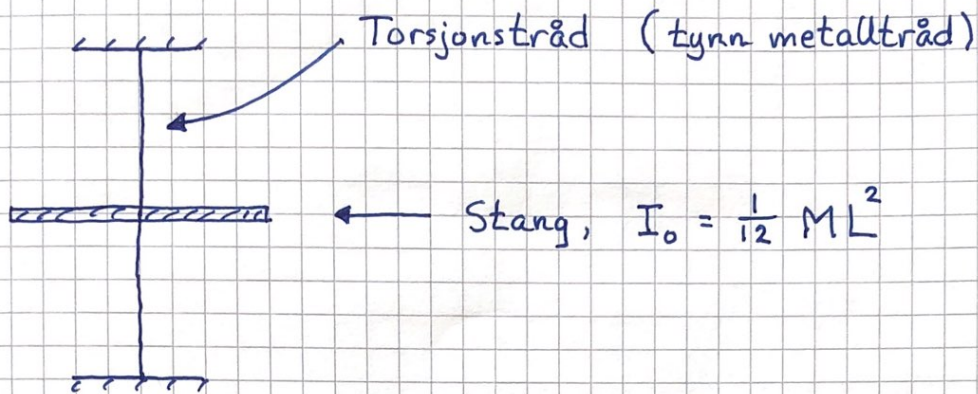 Torsjonstråd (tynn metalltråd)
Stang, I₀ = 1/12 ML²